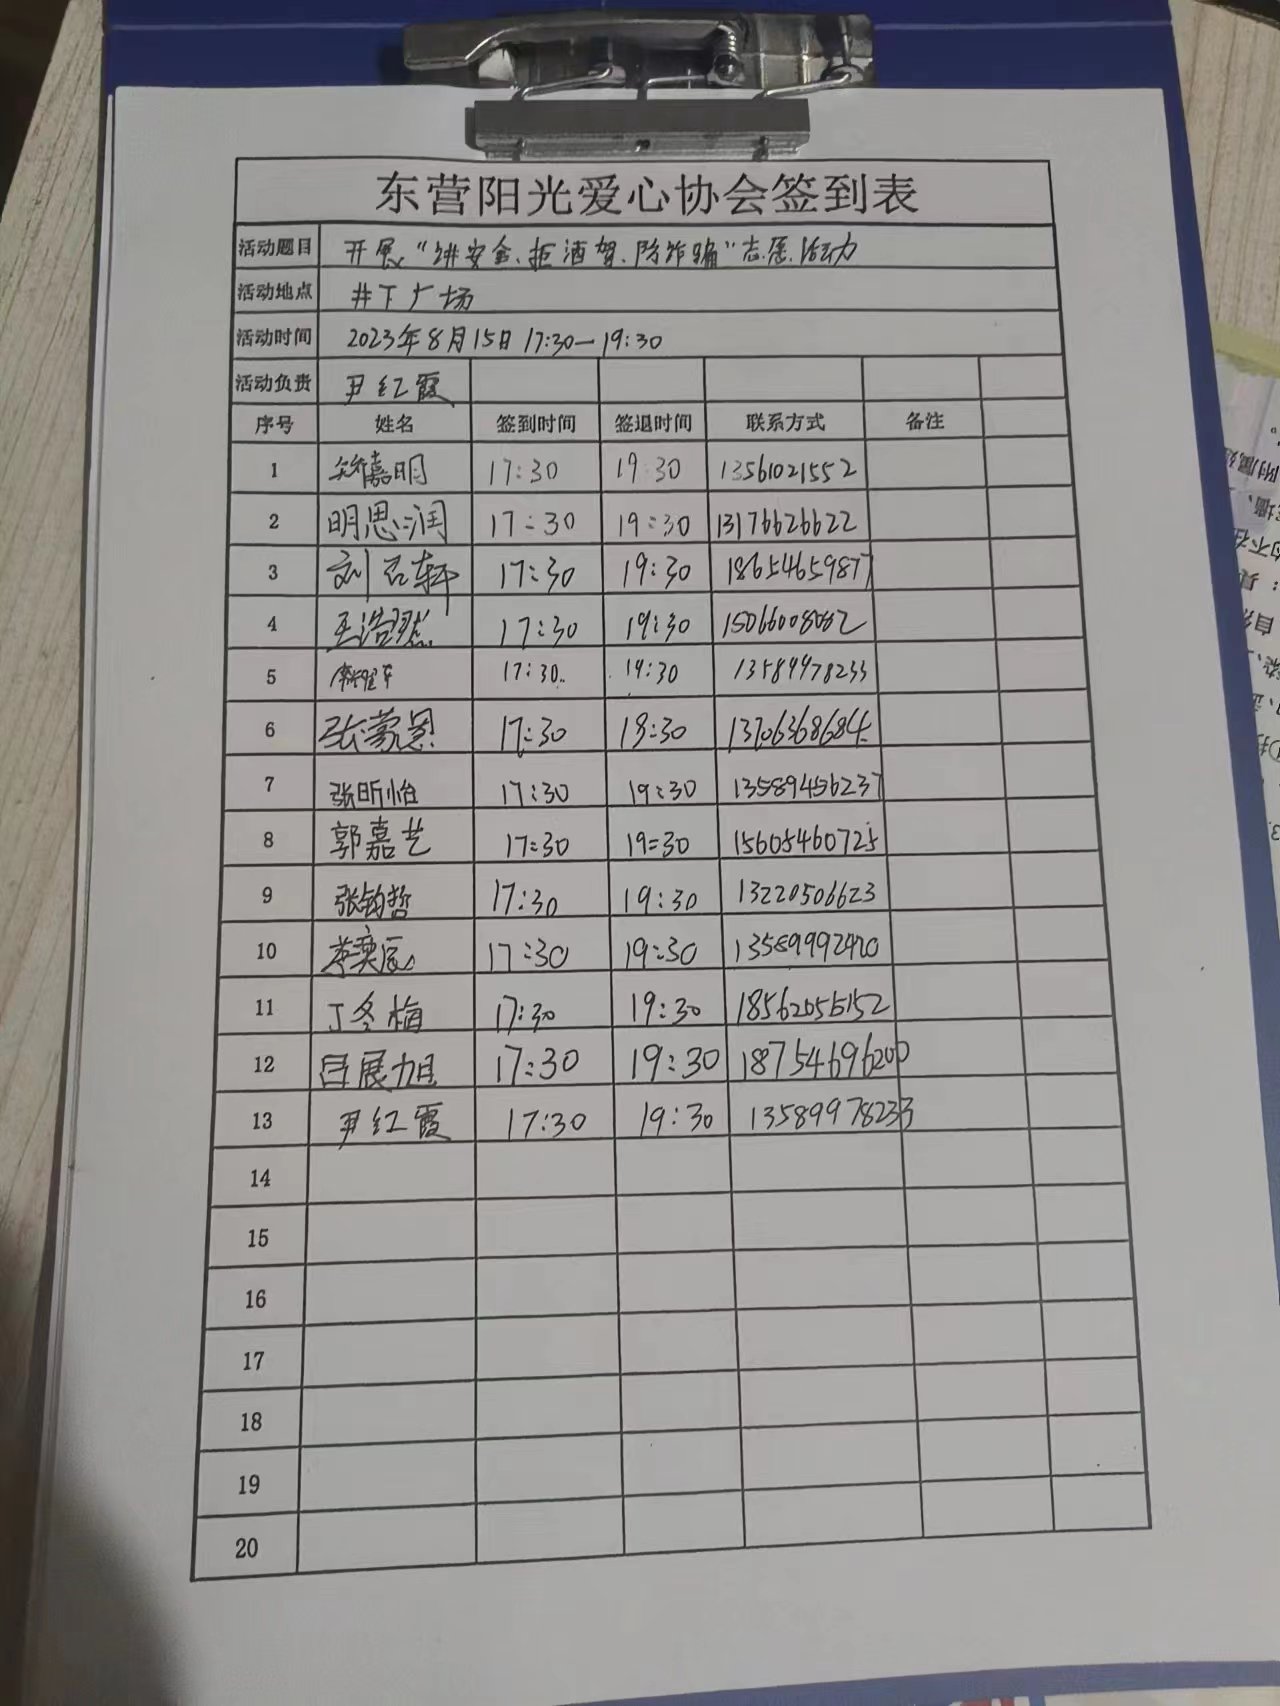 东营阳光爱心协会签到表
活动题目 开展"讲安全、拒酒驾、防诈骗"志愿活动
活动地点 井下广场
活动时间 2023年8月15日 17:30—19:30
活动负责 尹红霞
序号 姓名 签到时间 签退时间 联系方式 备注
1 嘉明 17:30 19:30 13561021552
2 明思润 17:30 19:30 13176626622
3 刘石轩 17:30 19:30 18654659877
4 王浩然 17:30 19:30 15066008082
5 17:30 19:30 13589978233
6 张蒙恩 17:30 19:30 13706368684
7 张昕怡 17:30 19:30 13589456237
8 郭嘉艺 17:30 19=30 15605460725
9 张钧哲 17:30 19:30 13220506623
10 李奕辰 17:30 19:30 13589992920
11 丁冬梅 17:30 19:30 18562055152
12 吕展旭 17:30 19:30 18754696200
13 尹红霞 17:30 19:30 13589978233
14
15
16
17
18
19
20